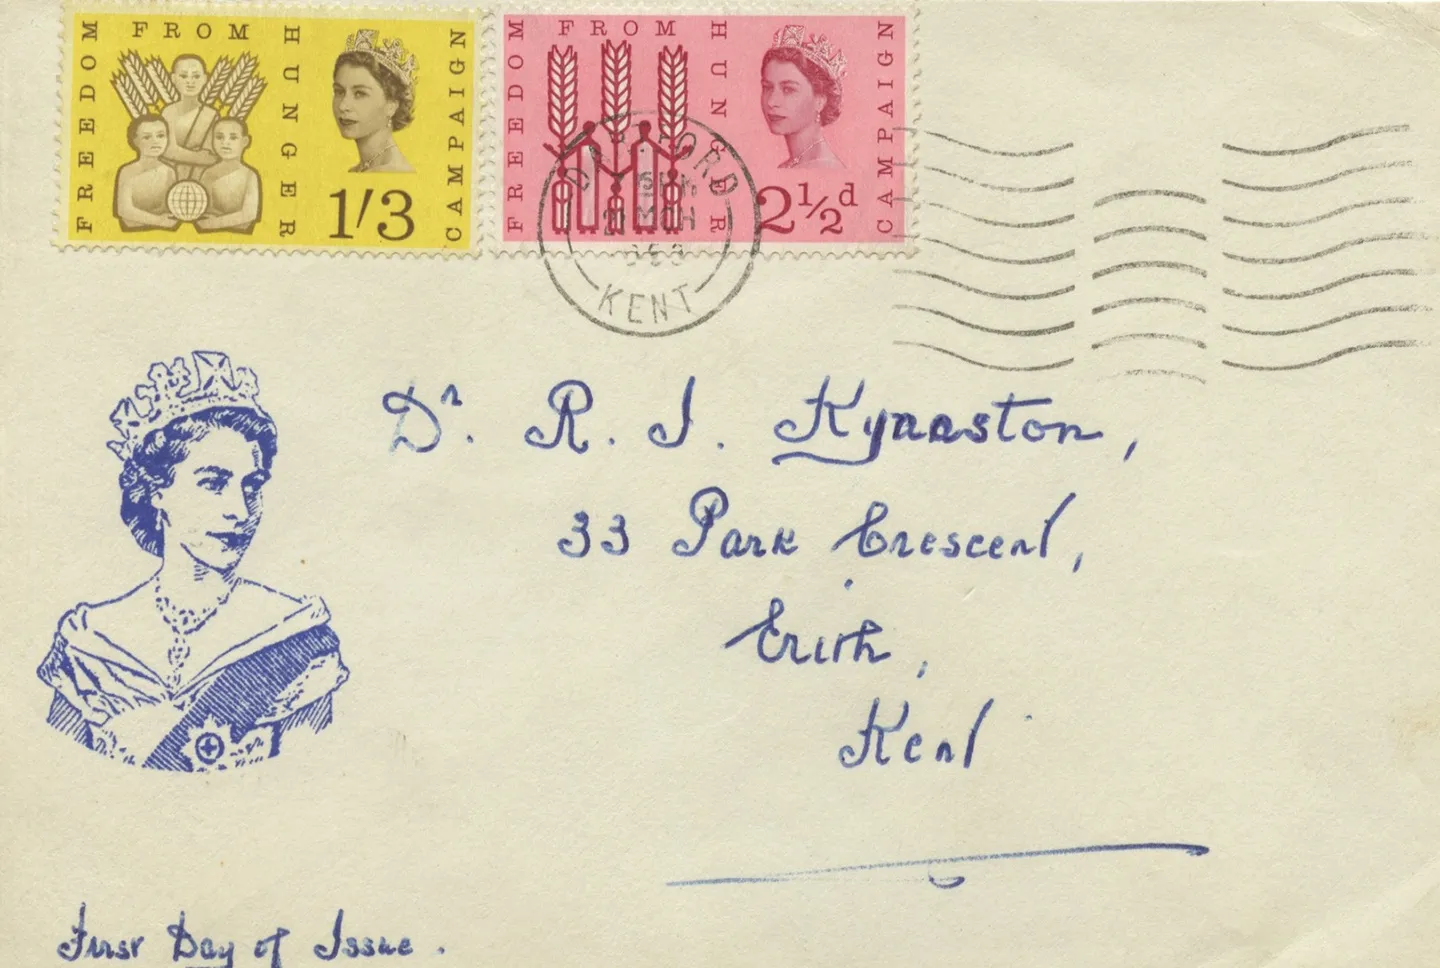 FREEDOM FROM HUNGER CAMPAIGN
1/3
FREEDOM FROM HUNGER CAMPAIGN
2½d
DARTFORD
21 MCH
1963
KENT
Dr. R. J. Kynaston,
33 Park Crescent,
Erith,
Kent
First Day of Issue.